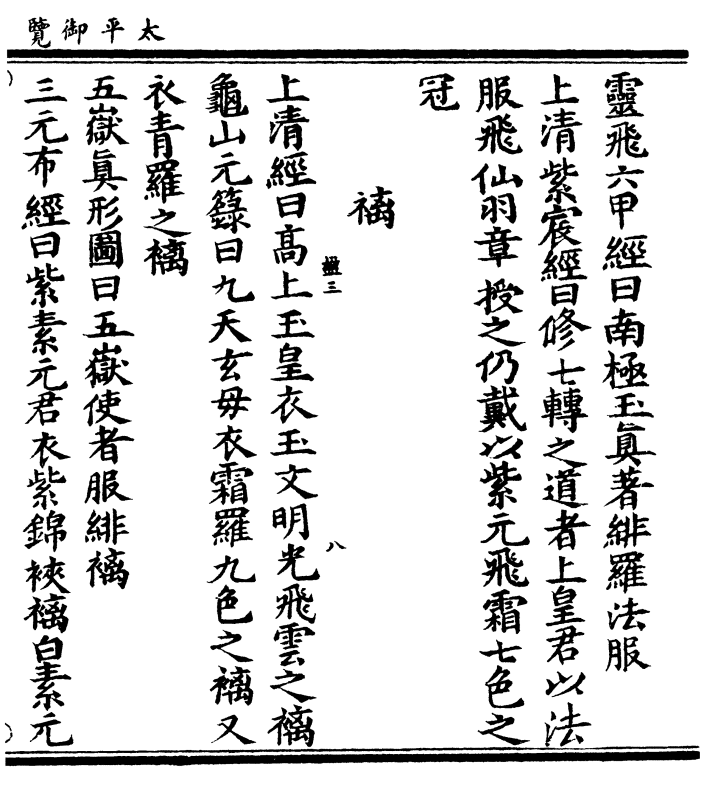 太平御覽
靈飛六甲經曰南極玉眞著緋羅法服
上清紫宸經曰修七轉之道者上皇君以法
服飛仙羽章授之仍戴以紫元飛霜七色之
冠
䙰
上清經曰高上玉皇衣玉文明光飛雲之䙰
三
八
龜山元籙曰九天玄母衣霜羅九色之䙰又
衣青羅之䙰
五嶽眞形圖曰五嶽使者服緋䙰
三元布經曰紫素元君衣紫錦裌䙰白素元